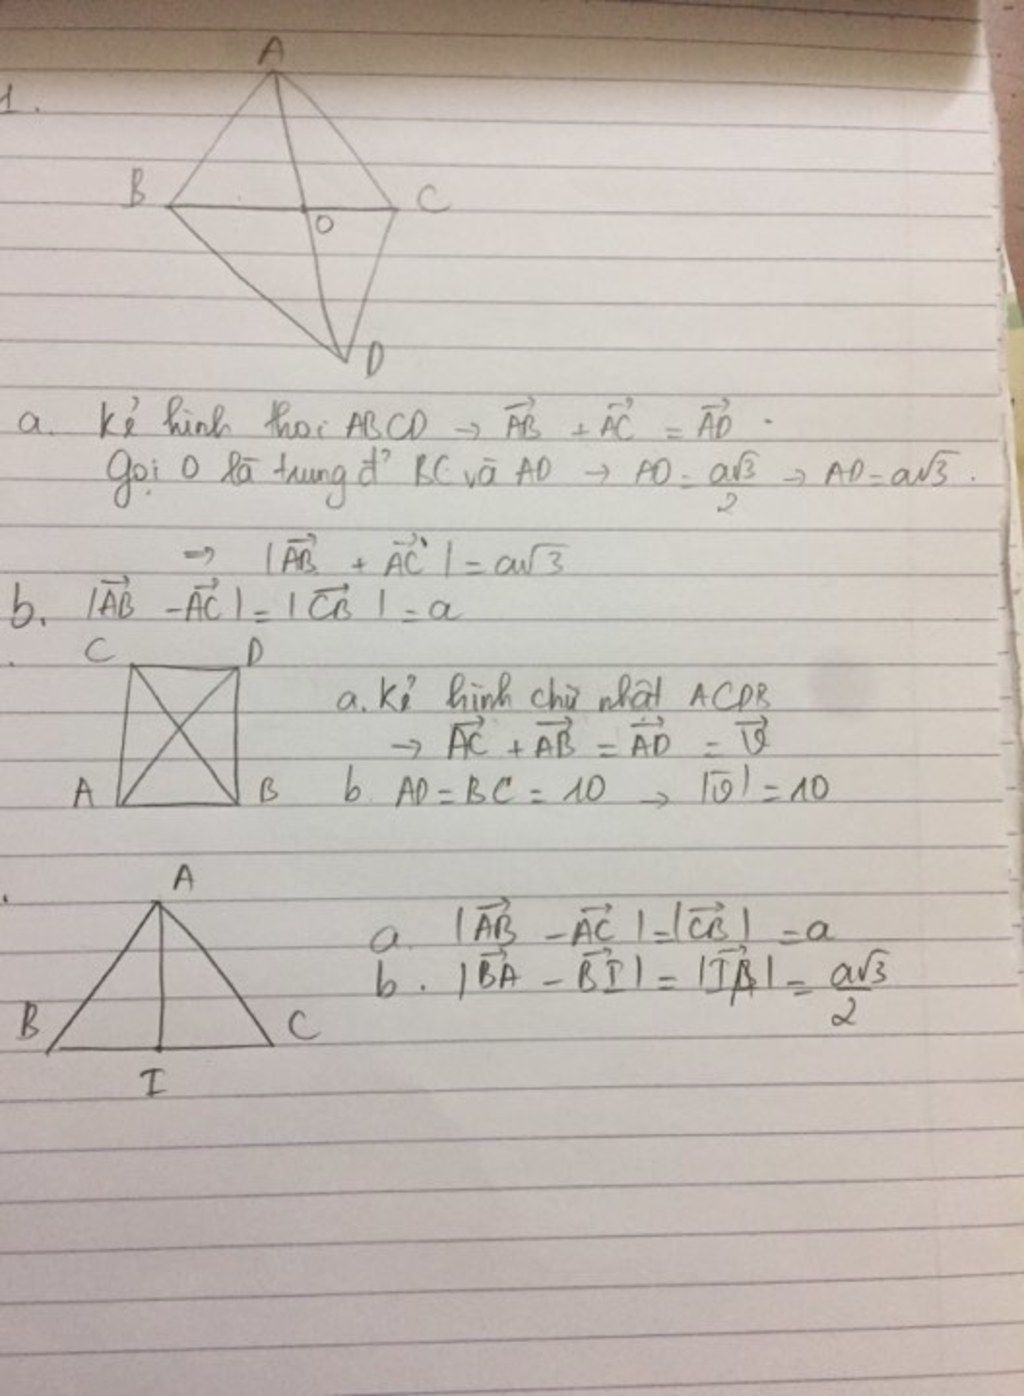 1.
A
B
C
O
D
a. Kẻ hình thoi ABCD → \overrightarrow{AB} + \overrightarrow{AC} = \overrightarrow{AD}.
Gọi O là trung đ' BC và AD → AO = \frac{a\sqrt{3}}{2} → AD = a\sqrt{3}.
→ |\overrightarrow{AB} + \overrightarrow{AC}| = a\sqrt{3}
b. |\overrightarrow{AB} - \overrightarrow{AC}| = |\overrightarrow{CB}| = a
C D
a. Kẻ hình chữ nhật ACDB
→ \overrightarrow{AC} + \overrightarrow{AB} = \overrightarrow{AD} = \overrightarrow{v}
A B
b. AD = BC = 10 → |\overrightarrow{v}| = 10
A
a. |\overrightarrow{AB} - \overrightarrow{AC}| = |\overrightarrow{CB}| = a
b. |\overrightarrow{BA} - \overrightarrow{BI}| = |\overrightarrow{IA}| = \frac{a\sqrt{3}}{2}
B C
I